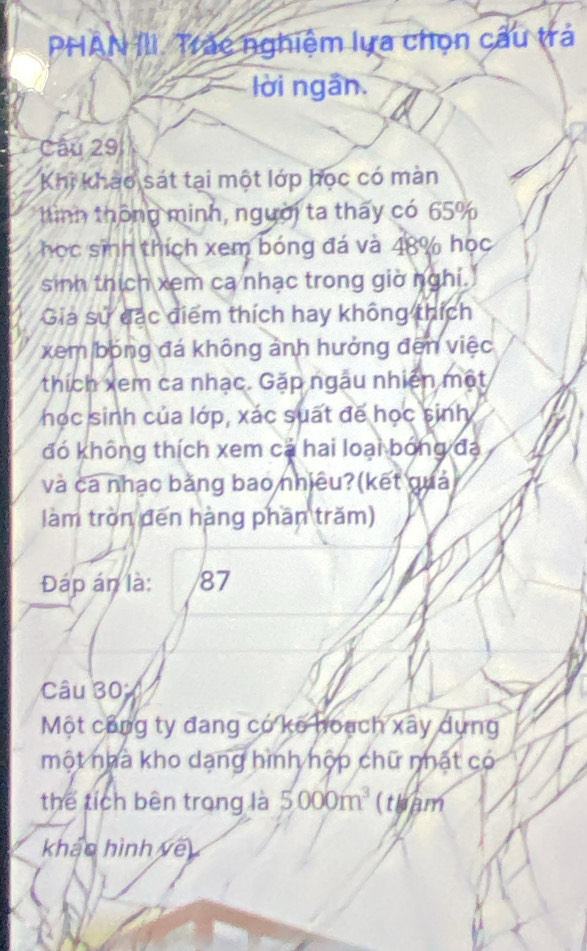 PHẦN III. Trắc nghiệm lựa chọn câu trả
lời ngắn.
Câu 29:
Khi khảo sát tại một lớp học có màn
hình thông minh, người ta thấy có 65%
học sinh thích xem bóng đá và 48% học
sinh thích xem ca nhạc trong giờ nghỉ.
Giả sử đặc điểm thích hay không thích
xem bóng đá không ảnh hưởng đến việc
thích xem ca nhạc. Gặp ngẫu nhiên một
học sinh của lớp, xác suất để học sinh
đó không thích xem cả hai loại bóng đá
và ca nhạc bằng bao nhiêu?(kết quả
làm tròn đến hàng phần trăm)
Đáp án là: 87
Câu 30:
Một công ty đang có kế hoạch xây dựng
một nhà kho dạng hình hộp chữ nhật có
thể tích bên trong là 5000m³ (tham
khảo hình vẽ).